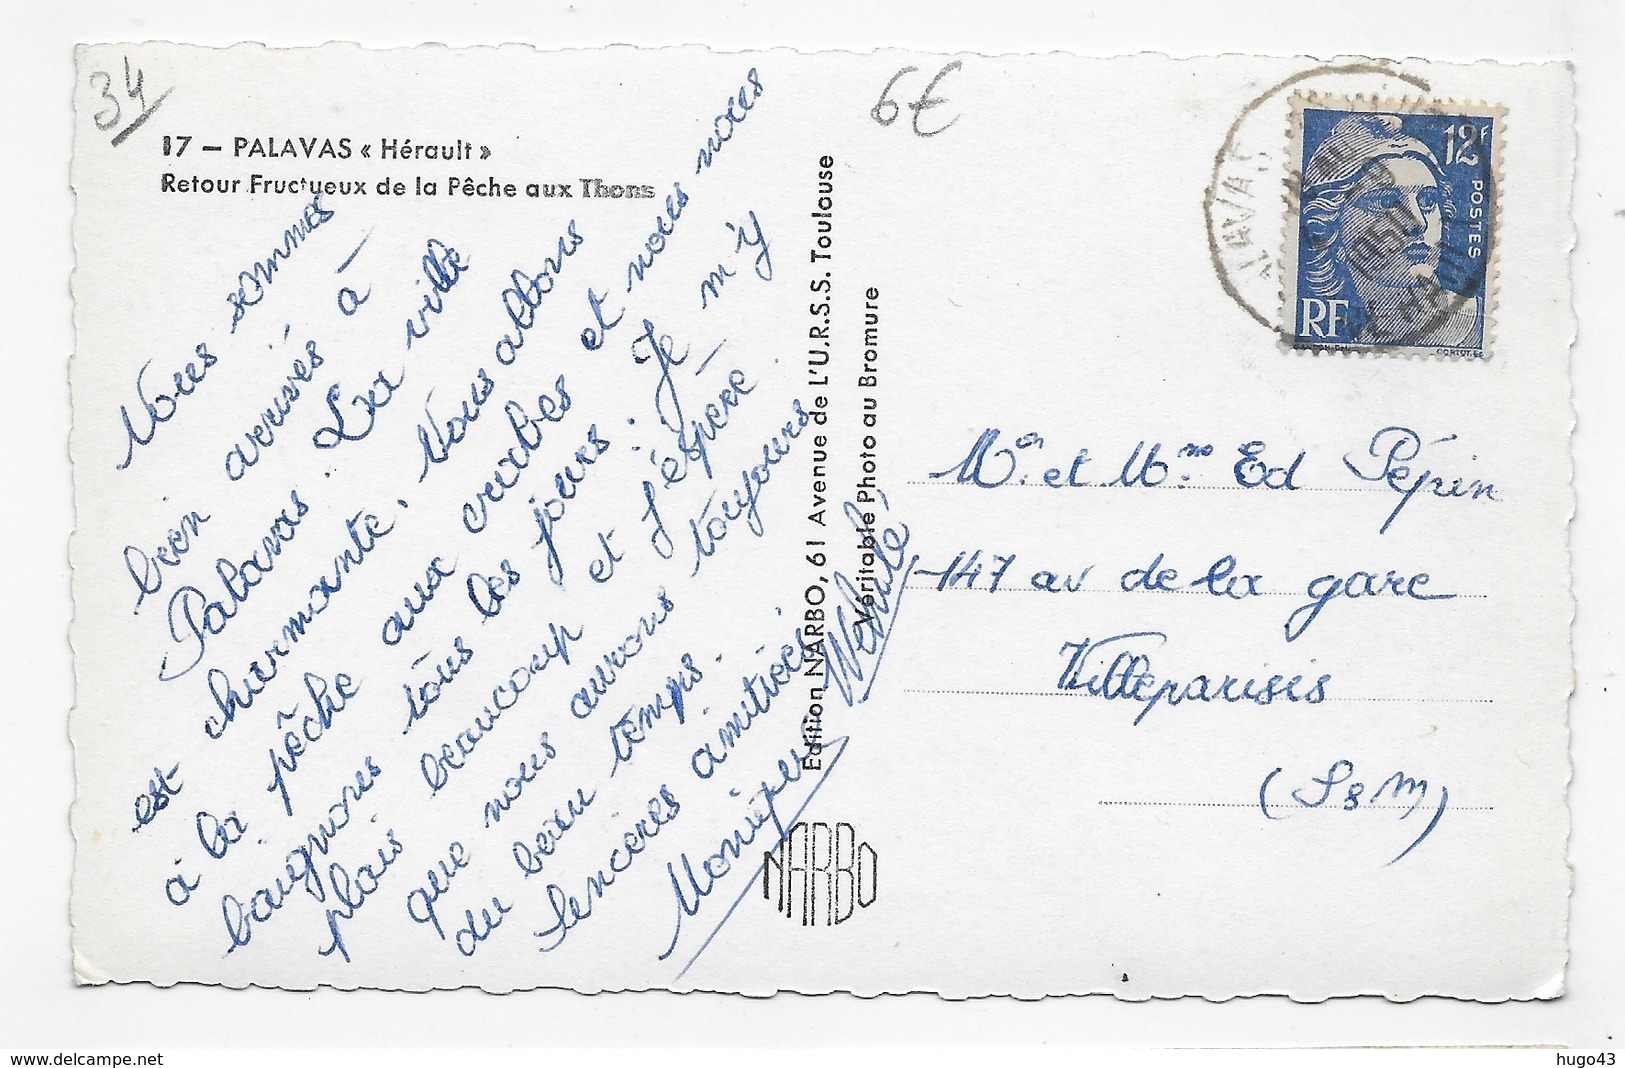 34
6€
17 — PALAVAS « Hérault »
Retour Fructueux de la Pêche aux Thons
Nous sommes
bien arrivés à
Palavas. La ville
est charmante. Nous allons
à la pêche aux crabes et nous nous
baignons tous les jours. Je m'y
plais beaucoup et j'espère
que nous aurons toujours
du beau temps.
Sincères amitiés
Monique
Edition NARBO, 61 Avenue de L'U.R.S.S. Toulouse
Véritable Photo au Bromure
NARBO
12f
POSTES
RF
Mr. et Mme Ed Pépin
147 av de la gare
Villeparisis
(S&M)
delcampe.net
hugo43